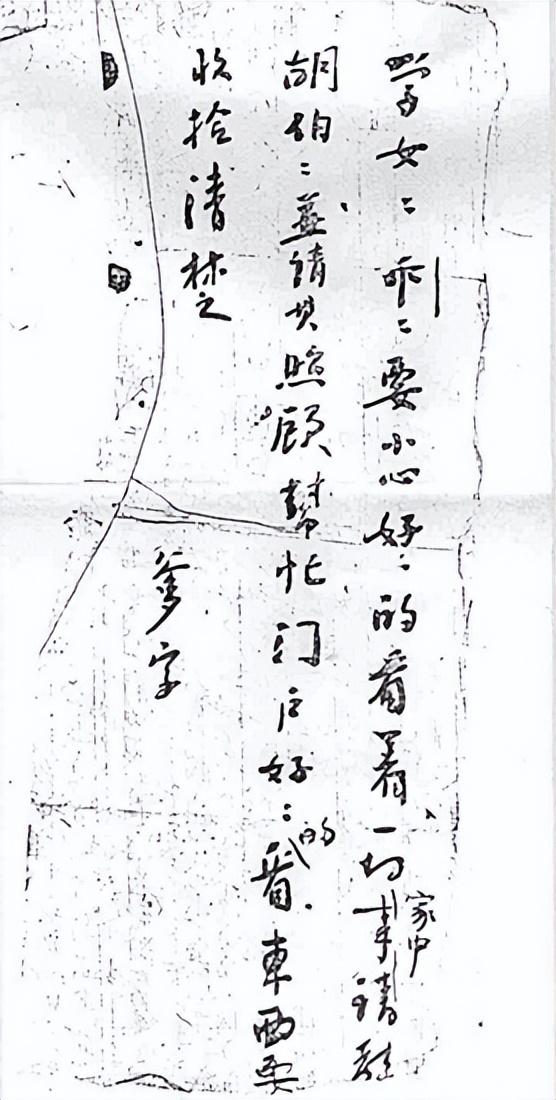 學女〻乖〻要小心好〻的看着、一切家中事請聽
胡伯〻並請其照顧幫忙门户好〻的看.東西要
收拾清楚
爹字